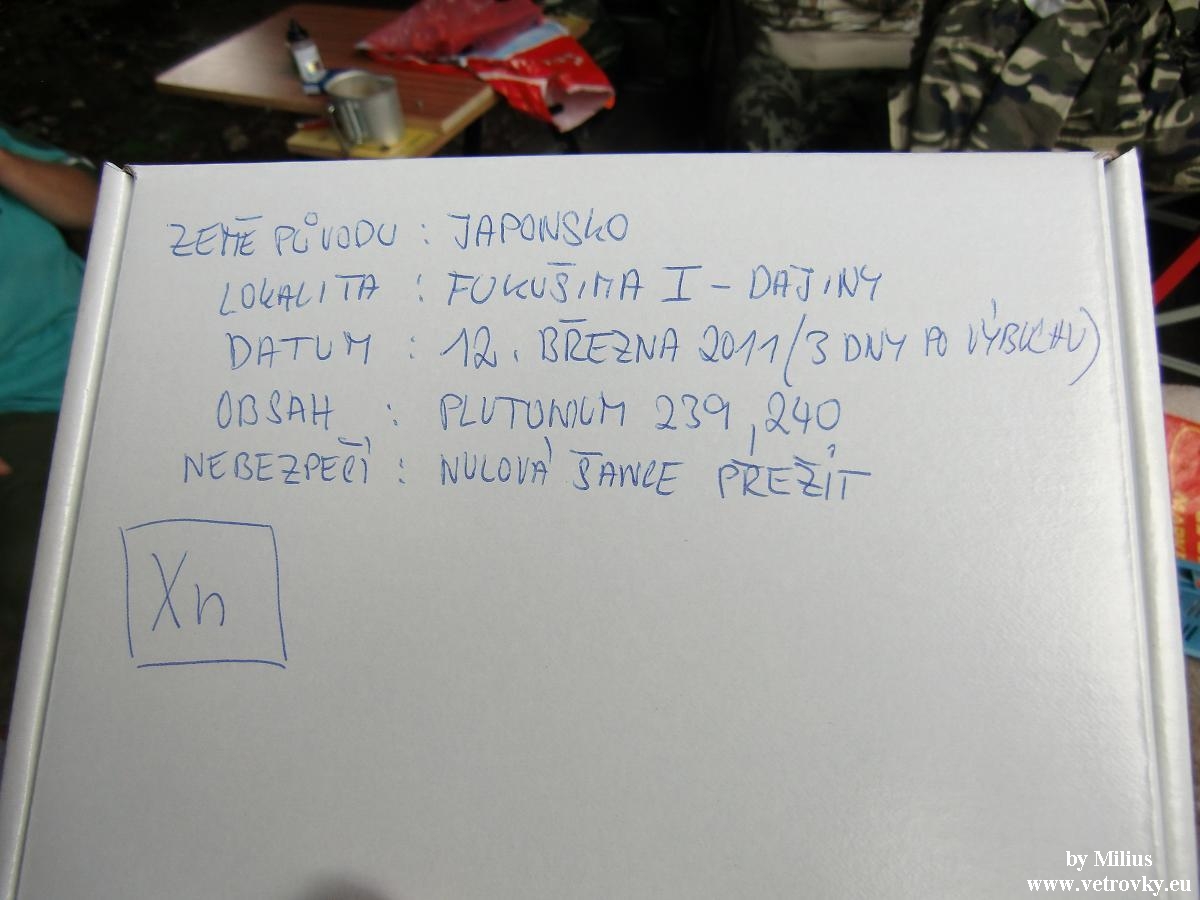 ZEMĚ PŮVODU : JAPONSKO
LOKALITA : FUKUŠIMA I - DAJINY
DATUM : 12. BŘEZNA 2011 (3 DNY PO VÝBUCHU)
OBSAH : PLUTONIUM 239, 240
NEBEZPEČÍ : NULOVÁ ŠANCE PŘEŽÍT
Xn
by Milius
www.vetrovky.eu